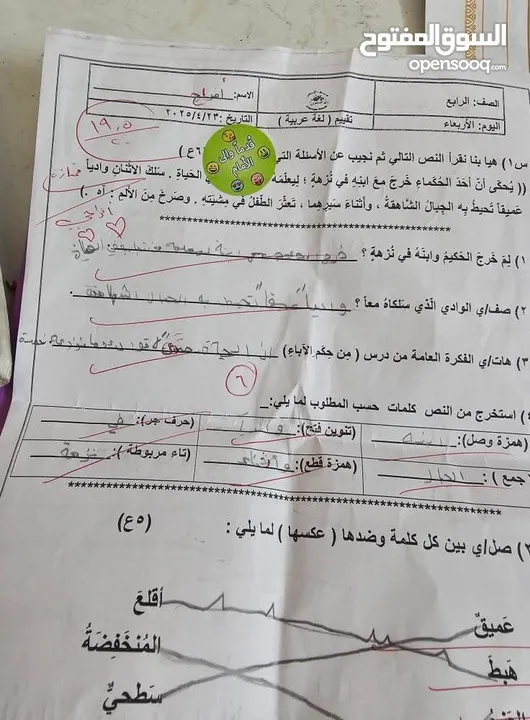 السوق المفتوح
opensooq.com
الصف: الرابع
الاسم:
اليوم: الأربعاء
تقييم ( لغة عربية )
التاريخ :٢٠٢٥/٤/٢٣
١٩,٥
٢٠
قُدماً وإلى الأمام
س١) هيا بنا نقرأ النص التالي ثم نجيب عن الأسئلة التي
(يُحكى أنّ أحَدَ الحُكماءِ خَرجَ معَ ابنِهِ في نُزهةٍ ؛ ليعلّمه الحَياةِ . سَلكَ الاثنانِ وادياً
عَميقاً تُحيطُ بهِ الجِبالُ الشّاهقةُ ، وأثناءَ سَيرِهما ، تَعثّرَ الطّفلُ في مِشيَتِه . وصَرخَ مِنَ الألمِ : آه .)
١) لِمَ خَرجَ الحَكيمُ وابنَهُ في نُزهةٍ ؟
٢) صف/ي الوادي الّذي سَلكاهُ معاً ؟ وادياً عميقاً تحيط به الجبال الشاهقة
٣) هات/ي الفكرة العامة من درس (مِن حِكَمِ الآباءِ)
٦
استخرج من النص كلمات حسب المطلوب لما يلي:
(همزة وصل): ابنه
(تنوين فتح): وادياً
(حرف جر): في
(جمع ): الجبال
(همزة قطع):
(تاء مربوطة ): نزهة
٢) صل/ي بين كل كلمة وضدها ( عكسها ) لما يلي : (٥ع)
عَميقٌ
أقلعَ
هَبطَ
المُنْخَفِضَةُ
سَطحيٌّ